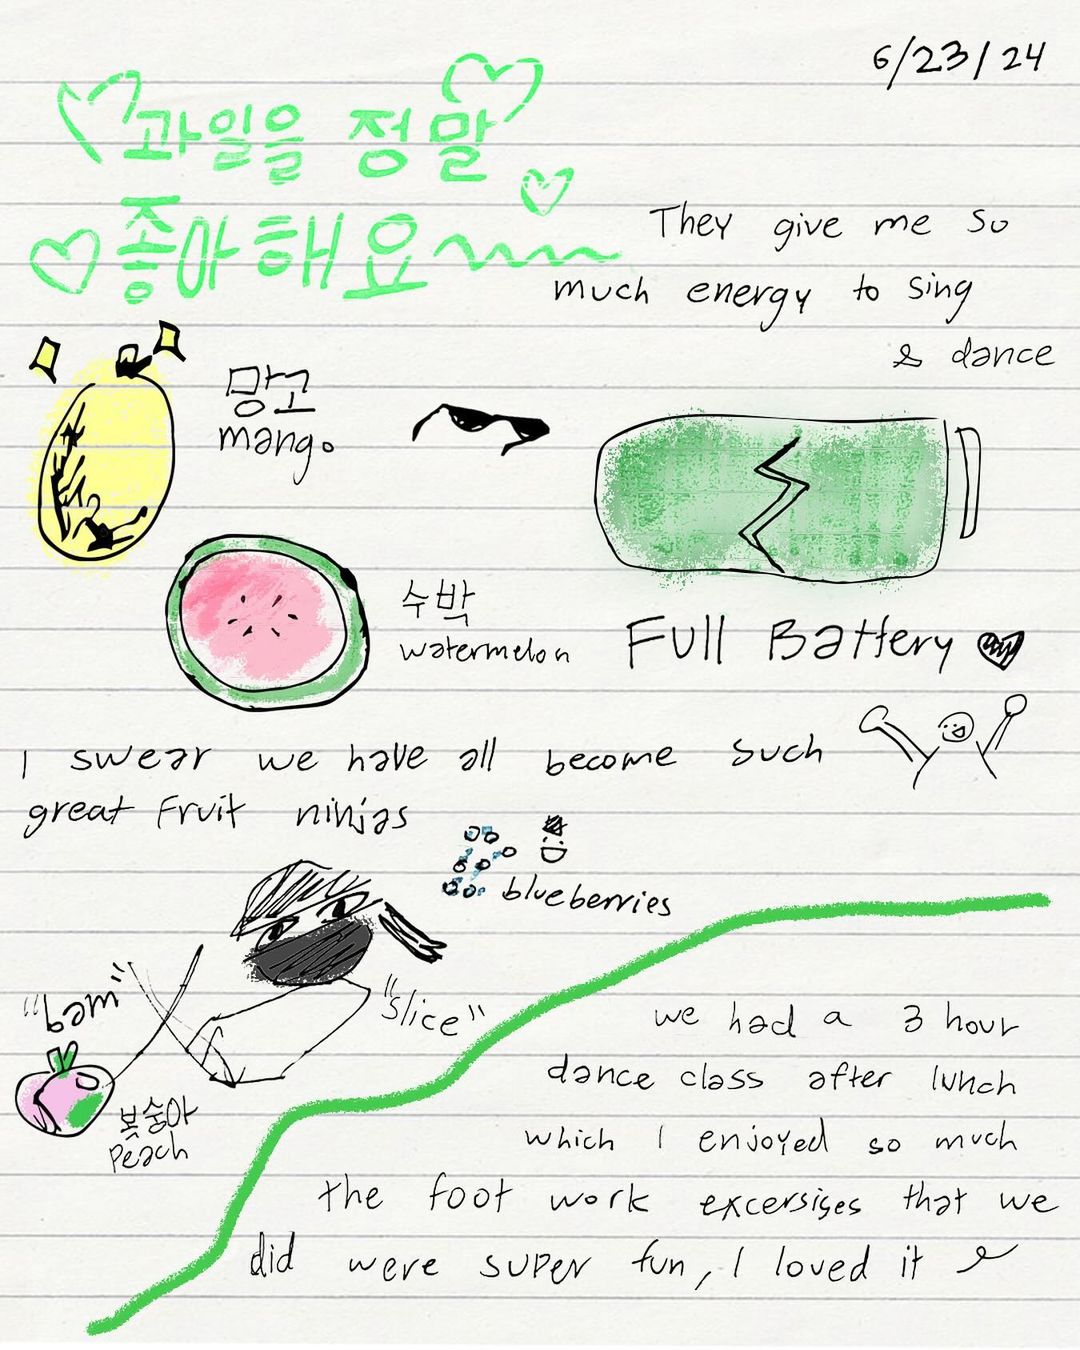 6/23/24
과일을 정말
좋아해요~
They give me so
much energy to sing
& dance
망고
mango
수박
watermelon
Full Battery
I swear we have all become such
great fruit ninjas
blueberries
"bam"
"slice"
복숭아
Peach
we had a 3 hour
dance class after lunch
which I enjoyed so much
the foot work excersises that we
did were super fun, I loved it